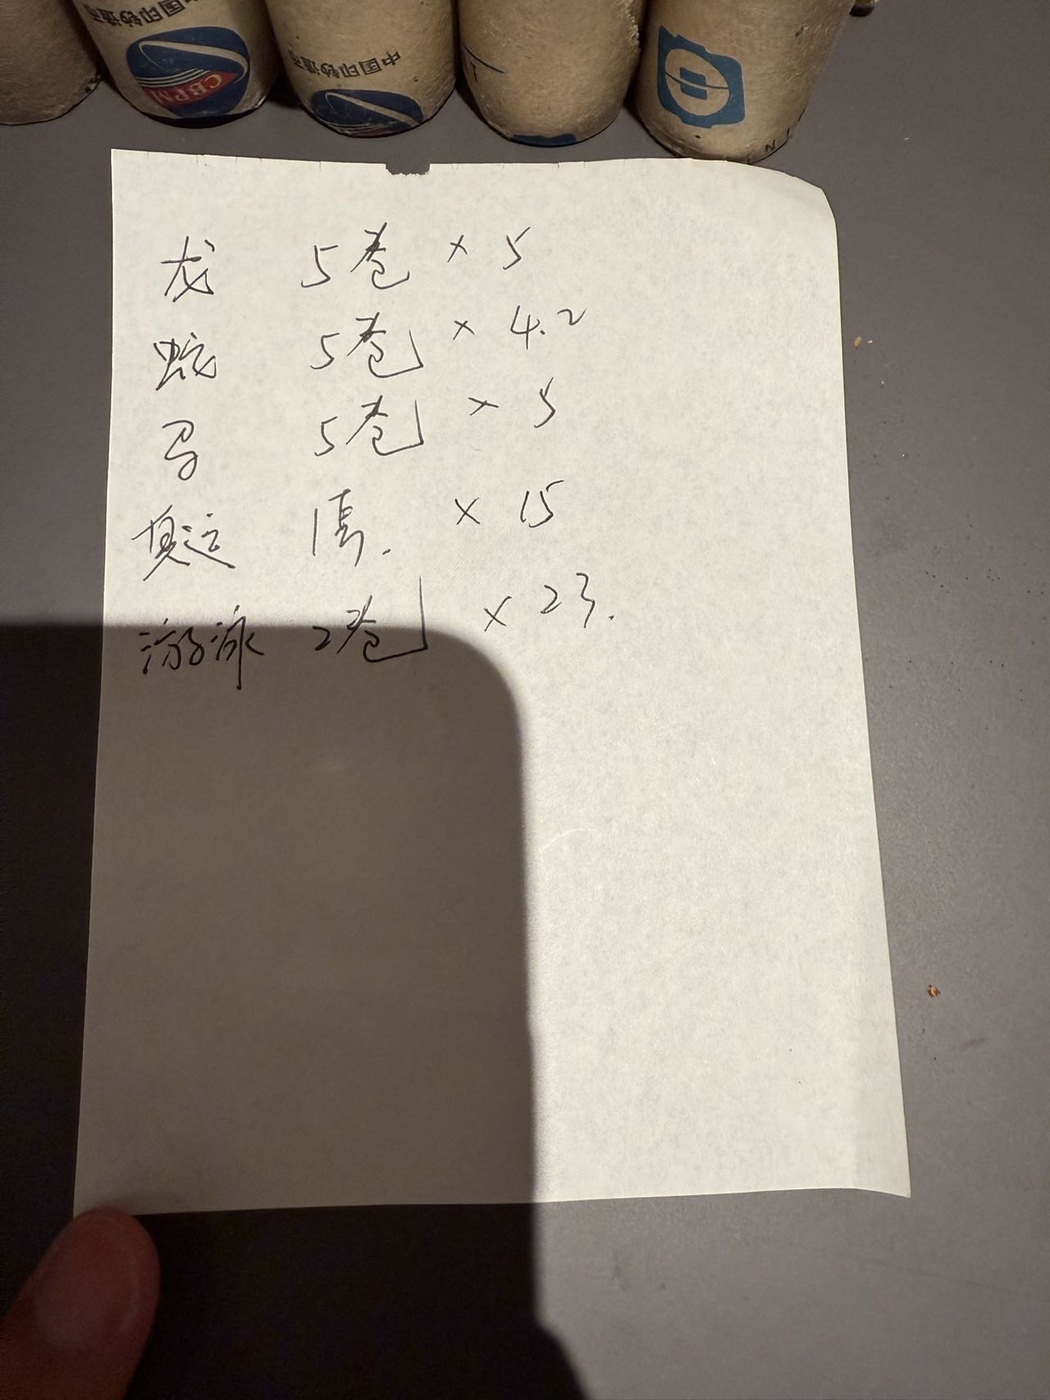 中国印钞造币
CBPM
中国印钞造币
龙 5卷 × 5
蛇 5卷 × 4.2
马 5卷 × 5
奥运 1套. × 15
游泳 2卷 × 23.